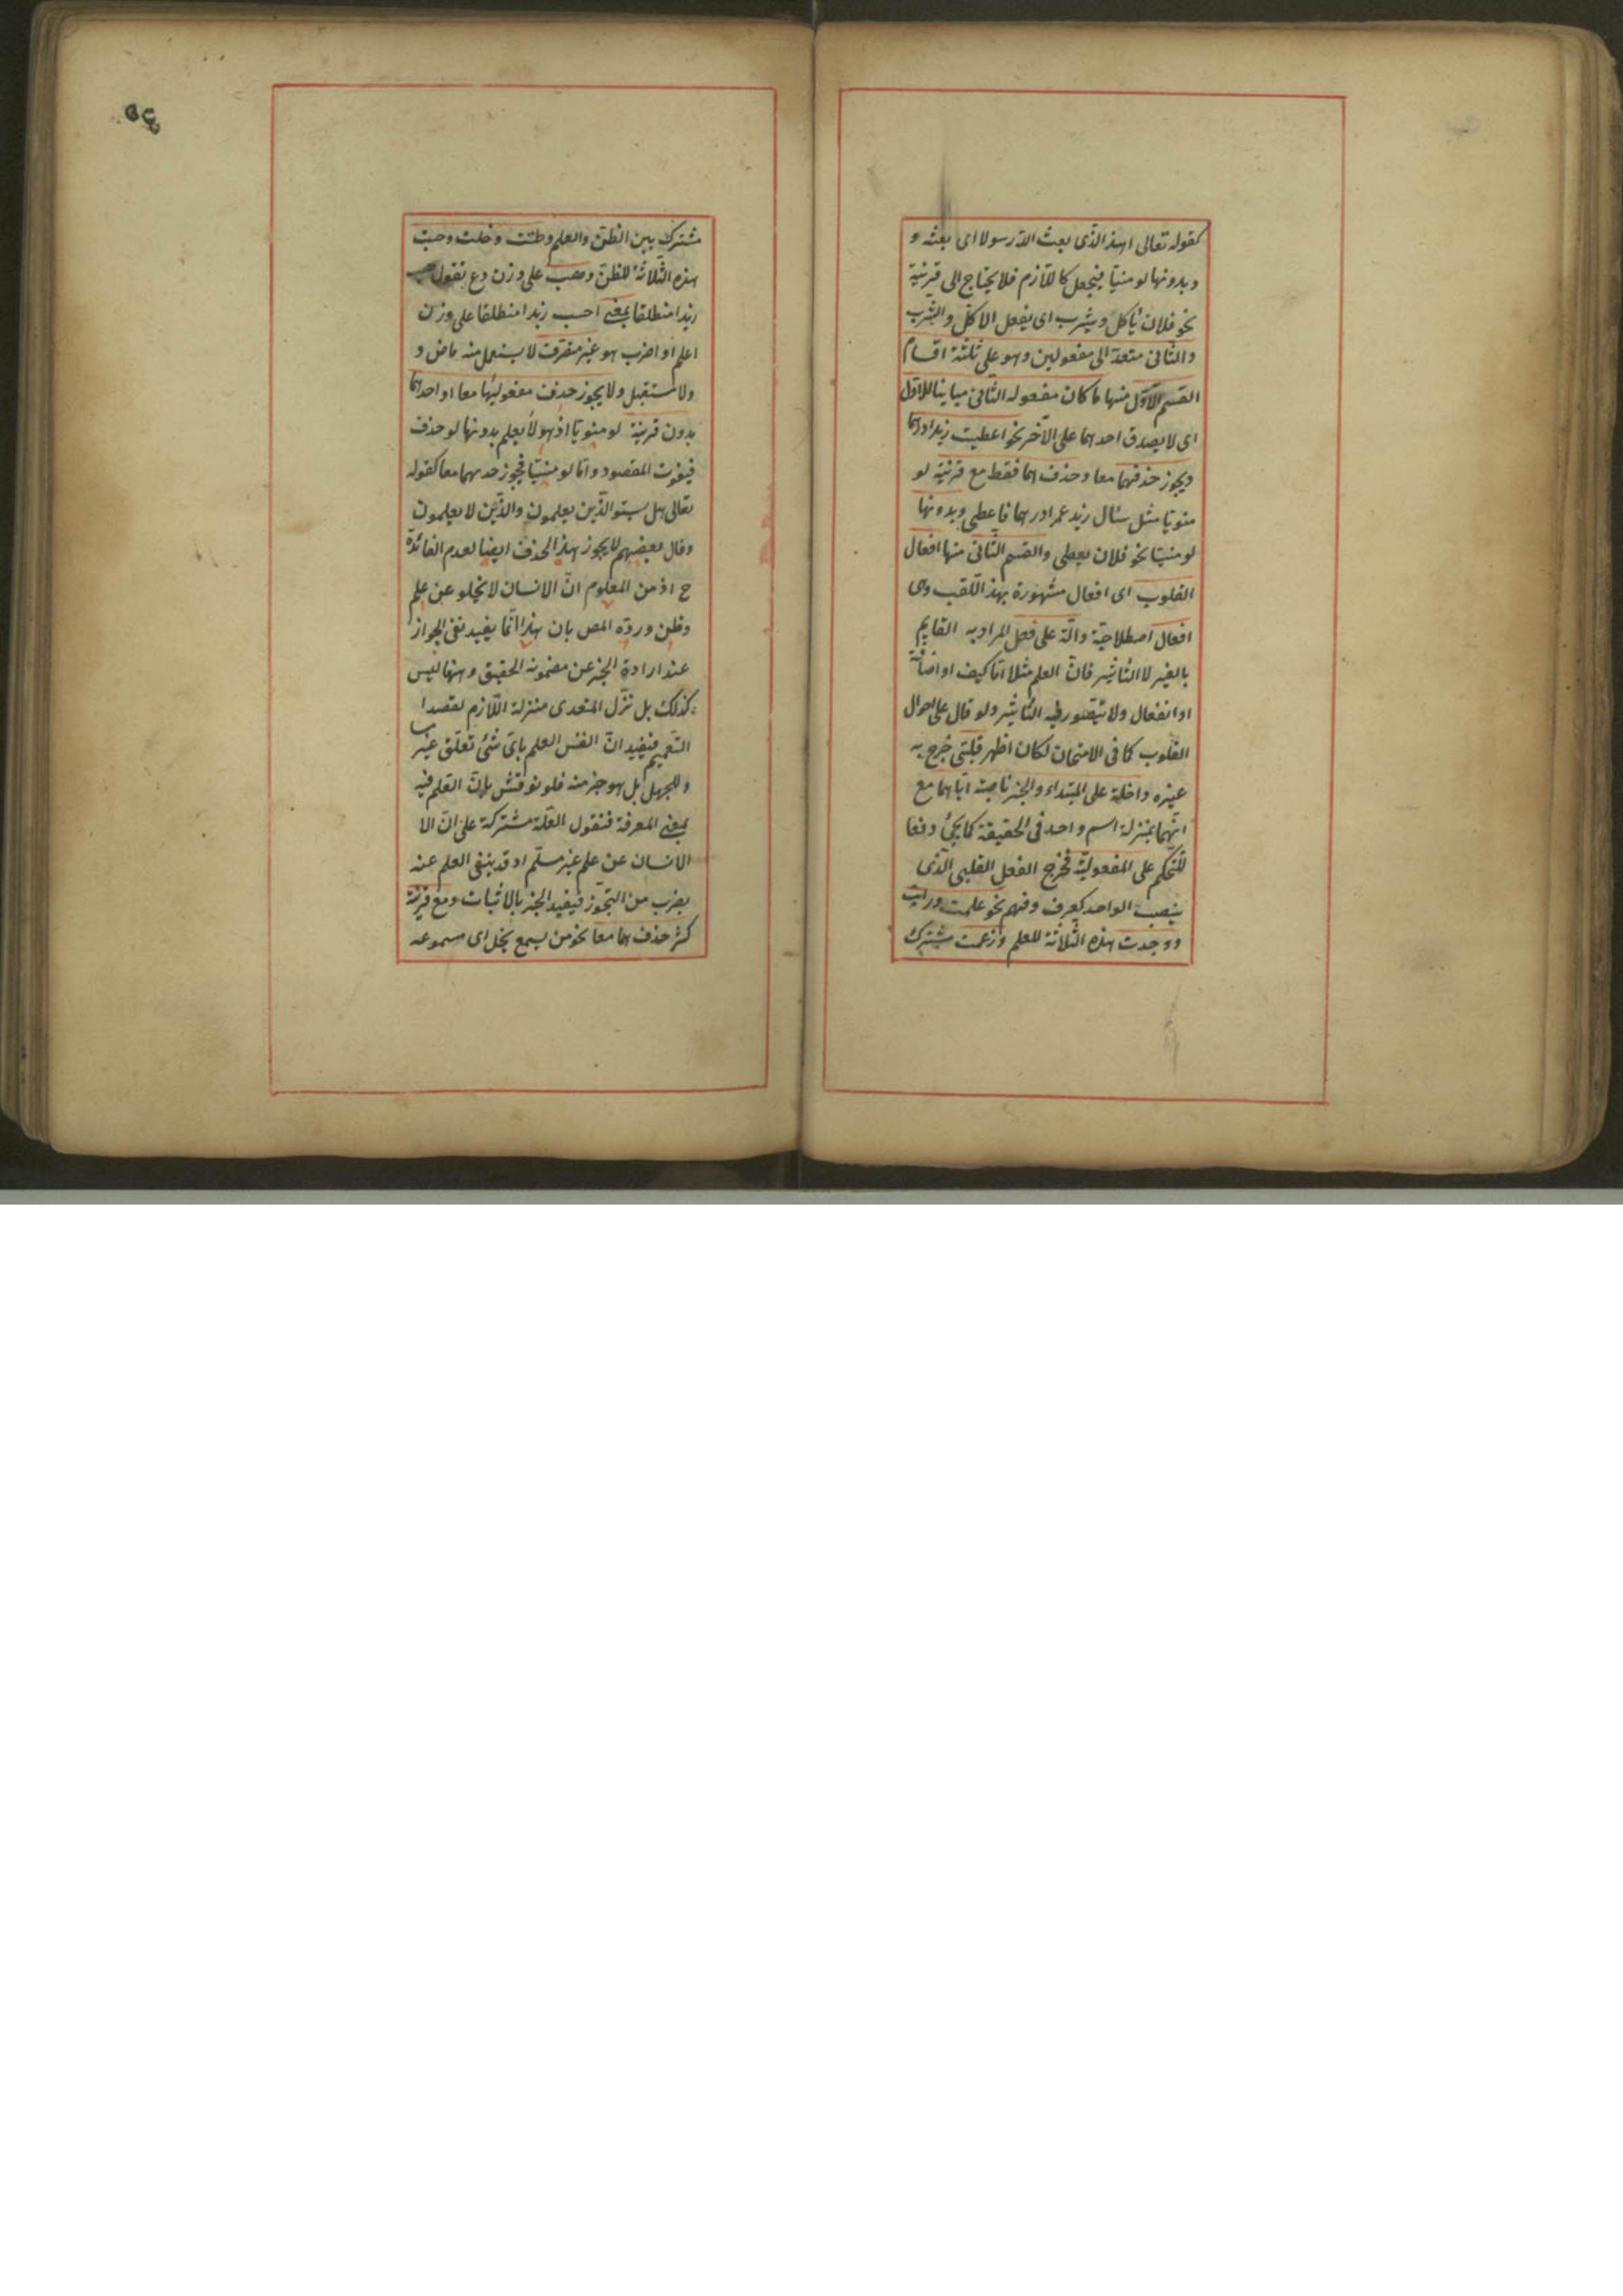 كقوله تعالى اهذا الذى بعث الله رسولا اى بعثه و
وبدونها لو منسيّا فيجعل كاللّازم فلا يحتاج الى قرينة
نحو فلان يأكل ويشرب اى يفعل الاكل والشرب
والثانى متعدّ الى مفعولين وهو على ثلثة اقسام
القسم الاوّل منها ما كان مفعوله الثانى مباينا للاوّل
اى لا يصدق احدهما على الآخر نحو اعطيت زيدا درهما
ويجوز حذفهما معا وحذف احدهما فقط مع قرينة لو
منويّا مثل سئال زيد عمرا درهما فاعطى وبدونها
لو منسيّا نحو فلان يعطى والقسم الثّانى منها افعال
القلوب اى افعال مشهورة بهذا اللّقب وهى
افعال اصطلاحيّة دالّة على فعل المراد به القايم
بالغير لا التأثير فانّ العلم مثلا امّا كيف او اضافة
او انفعال ولا يتصوّر فيه التأثير ولو قال على احوال
القلوب كما فى الامتحان لكان اظهر قلبىّ خرج به
غيره داخلة على المبتداء والخبر ناصبة ايّاهما مع
انّهما بمنزلة اسم واحد فى الحقيقة كما يجئ دفعا
للتّحكم على المفعوليّة فخرج الفعل القلبى الّذى
ينصب الواحد كعرف وفهم نحو علمت ورايت
ووجدت هذه الثّلاثة للعلم وزعمت مشترك
مشترك بين الظنّ والعلم وظننت وخلت وحسبت
هذه الثّلاثة للظنّ وهب على وزن دع تقول هب
زيدا منطلقا بمعنى احسب زيدا منطلقا على وزن
اعلم او اضرب هو غير متصرّف لا يستعمل منه ماض و
ولا مستقبل ولا يجوز حذف مفعوليها معا او احدهما
بدون قرينة لو منويّا اذ هو لا يعلم بدونها لو حذف
فيفوت المقصود وامّا لو منسيّا فيجوز حذفهما معا كقوله
تعالى هل يستوالّذين يعلمون والّذين لا يعلمون
وقال بعضهم لا يجوز هذا الحذف ايضا لعدم الفائدة
ح اذ من المعلوم انّ الانسان لا يخلو عن علم
وظن وردّه المص بان هذا انّما يفيد نفى الجواز
عند ارادة الخبر عن مضمونه الحقيق وههنا ليس
كذلك بل نزّل المتعدى منزلة اللّازم لقصد ا
التّعميم فيفيد انّ النفس العلم باىّ شئ تعلّق غير
للجهل بل هو خير منه فلو نوقش بانّ العلم فيه
بمعنى المعرفة فنقول العلّة مشتركة على انّ الا
الانسان عن علم غير مسلّم اذ قد ينفى العلم عنه
بضرب من التّجوّز فيفيد الخبر بالاثبات ومع قرينة
كثر حذفهما معا نحو من يسمع يخل اى مسموعه